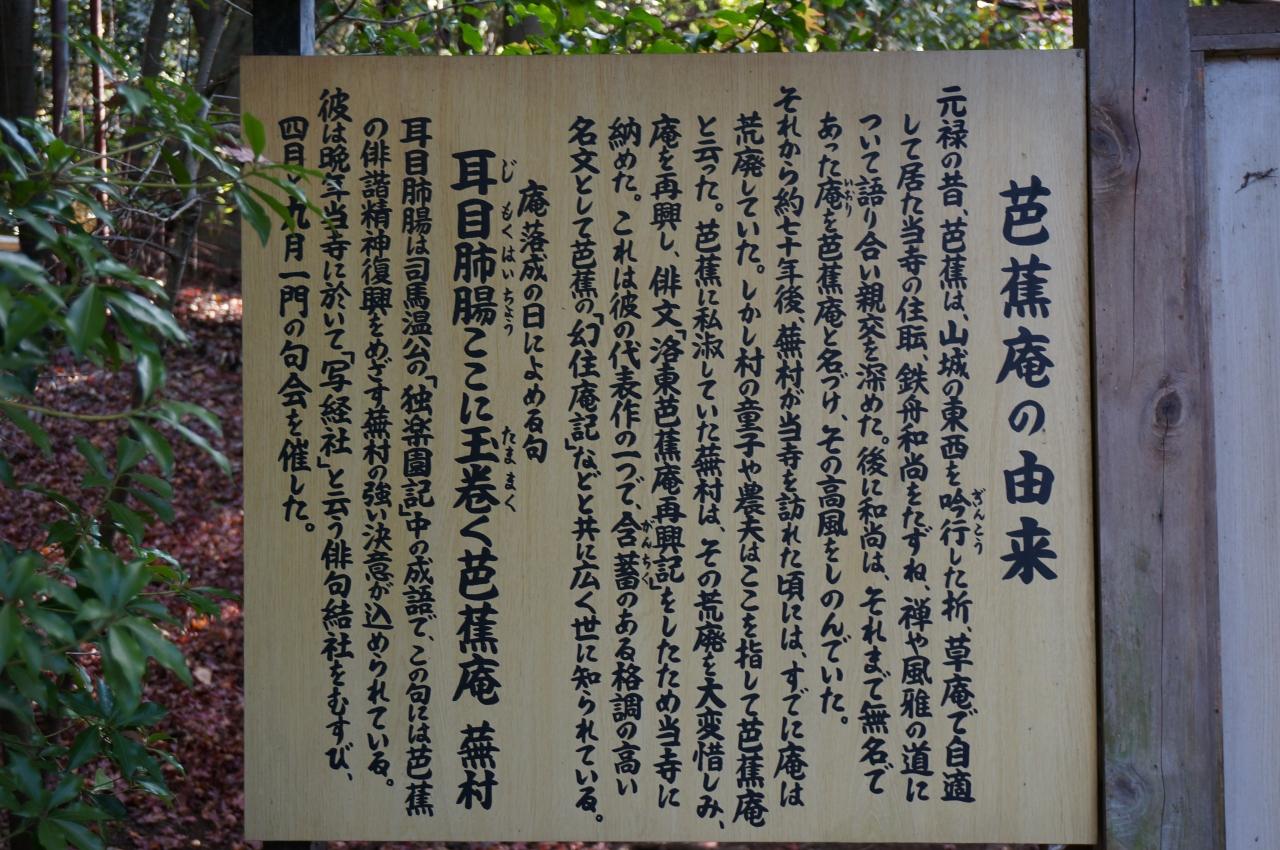 芭蕉庵の由来
元禄の昔、芭蕉は、山城の東西を吟行した折、草庵で自適
して居た当寺の住職、鉄舟和尚をたずね、禅や風雅の道に
ついて語り合い親交を深めた。後に和尚は、それまで無名で
あった庵を芭蕉庵と名づけ、その高風をしのんでいた。
それから約七十年後、蕪村が当寺を訪れた頃には、すでに庵は
荒廃していた。しかし村の童子や農夫はここを指して芭蕉庵
と云った。芭蕉に私淑していた蕪村は、その荒廃を大変惜しみ、
庵を再興し、俳文「洛東芭蕉庵再興記」をしたため当寺に
納めた。これは彼の代表作の一つで、含蓄のある格調の高い
名文として芭蕉の「幻住庵記」などと共に広く世に知られている。
庵落成の日によめる句
耳目肺腸ここに玉巻く芭蕉庵 蕪村
耳目肺腸は司馬温公の「独楽園記」中の成語で、この句には芭蕉
の俳諧精神復興をめざす蕪村の強い決意が込められている。
彼は晩年当寺に於いて「写経社」と云う俳句結社をむすび、
四月 九月一門の句会を催した。